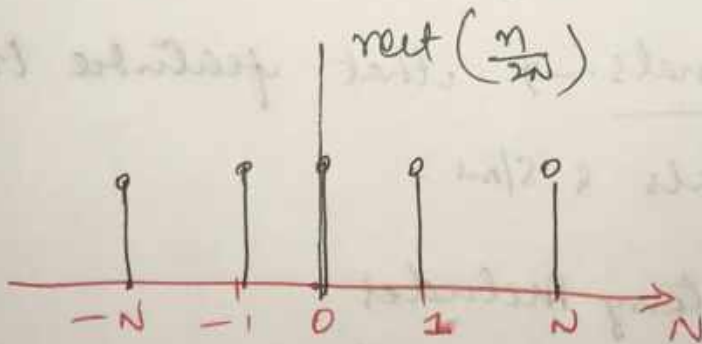 rect (n/2N)
-N -1 0 1 N N